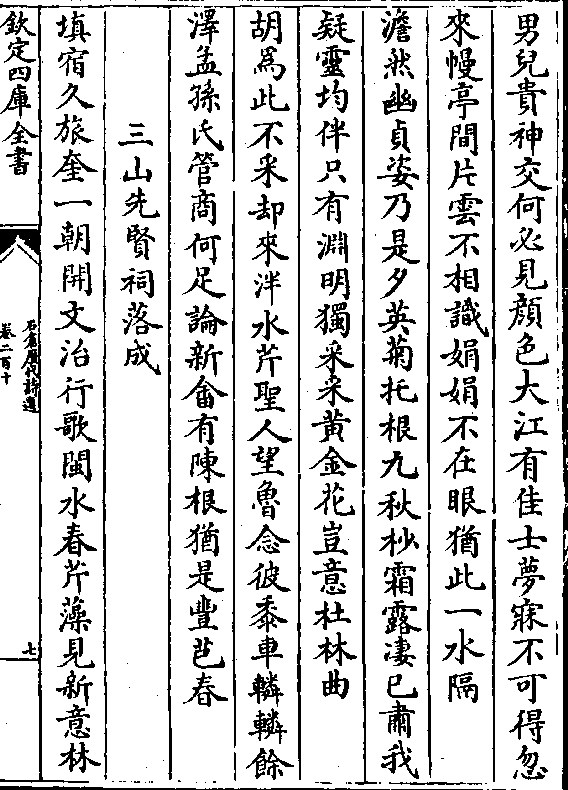 男兒貴神交何必見顔色大江有佳士夢寐不可得忽
來幔亭間片雲不相識娟娟不在眼猶此一水隔
澹然幽貞姿乃是夕英菊托根九秋杪霜露凄已肅我
疑靈均伴只有淵明獨采采黄金花豈意杜林曲
胡為此不采却來泮水芹聖人望魯念彼黍車轔轔餘
澤孟孫氏管商何足論新畬有陳根猶是豐芑春
三山先賢祠落成
填宿久旅奎一朝開文治行歌閩水春芹藻見新意林
欽定四庫全書
石倉歷代詩選
卷二百十
七